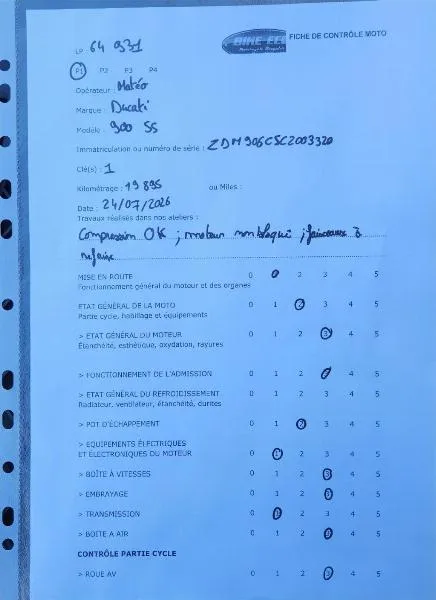 BIKE-EEL
FICHE DE CONTRÔLE MOTO
LP : 64 931
P1 P2 P3 P4
Opérateur : Matéo
Marque : Ducati
Modèle : 900 SS
Immatriculation ou numéro de série : ZDM906CSC2003320
Clé(s) : 1
Kilométrage : 19 895 ou Miles :
Date : 24/07/2026
Travaux réalisés dans nos ateliers :
Compression OK ; moteur non bloqué ; faisceaux à
refaire
MISE EN ROUTE 0 1 2 3 4 5
Fonctionnement général du moteur et des organes
ETAT GÉNÉRAL DE LA MOTO 0 1 2 3 4 5
Partie cycle, habillage et équipements
> ETAT GÉNÉRAL DU MOTEUR 0 1 2 3 4 5
Étanchéité, esthétique, oxydation, rayures
> FONCTIONNEMENT DE L'ADMISSION 0 1 2 3 4 5
> ETAT GÉNÉRAL DU REFROIDISSEMENT 0 1 2 3 4 5
Radiateur, ventilateur, étanchéité, durites
> POT D'ÉCHAPPEMENT 0 1 2 3 4 5
> EQUIPEMENTS ÉLECTRIQUES
ET ÉLECTRONIQUES DU MOTEUR 0 1 2 3 4 5
> BOÎTE À VITESSES 0 1 2 3 4 5
> EMBRAYAGE 0 1 2 3 4 5
> TRANSMISSION 0 1 2 3 4 5
> BOITE A AIR 0 1 2 3 4 5
CONTRÔLE PARTIE CYCLE
> ROUE AV 0 1 2 3 4 5